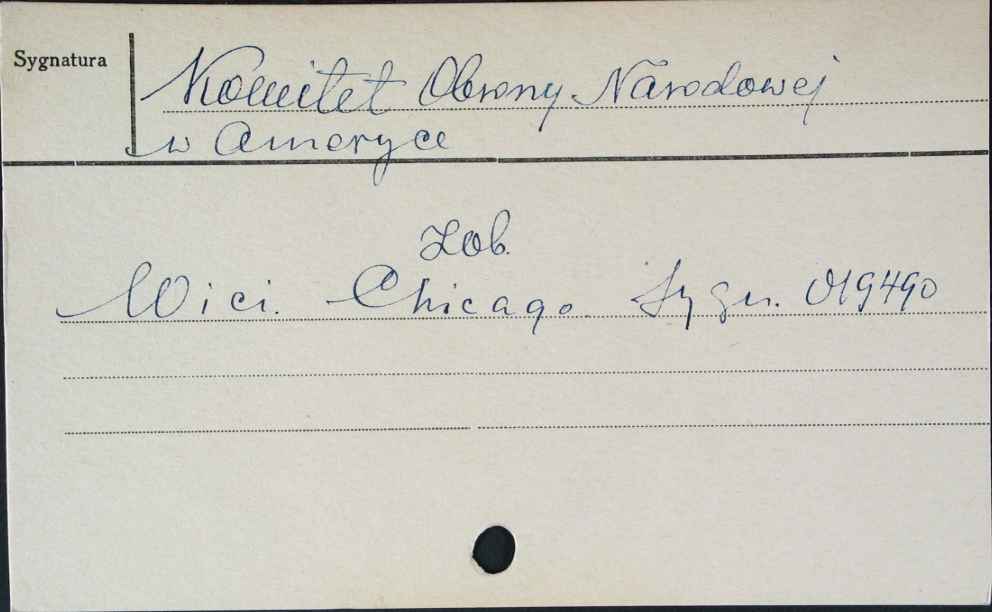 Sygnatura
Komitet Obrony Narodowej
w Ameryce
Zob.
Wici. Chicago. Sygn. 019490